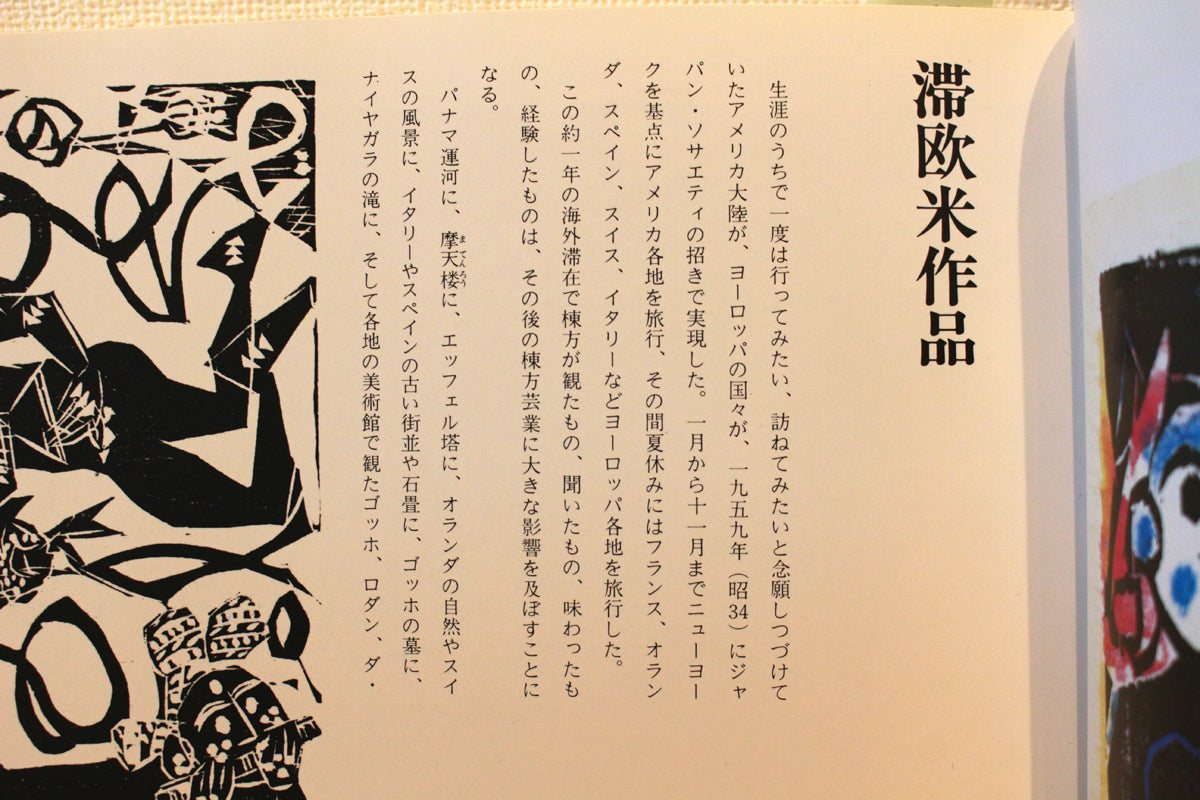 滞欧米作品
生涯のうちで一度は行ってみたい、訪ねてみたいと念願しつづけて
いたアメリカ大陸が、ヨーロッパの国々が、一九五九年（昭34）にジャ
パン・ソサエティの招きで実現した。一月から十一月までニューヨー
クを基点にアメリカ各地を旅行、その間夏休みにはフランス、オラン
ダ、スペイン、スイス、イタリーなどヨーロッパ各地を旅行した。
この約一年の海外滞在で棟方が観たもの、聞いたもの、味わったも
の、経験したものは、その後の棟方芸業に大きな影響を及ぼすことに
なる。
パナマ運河に、摩天楼に、エッフェル塔に、オランダの自然やスイ
まてんろう
スの風景に、イタリーやスペインの古い街並や石畳に、ゴッホの墓に、
ナイヤガラの滝に、そして各地の美術館で観たゴッホ、ロダン、ダ・